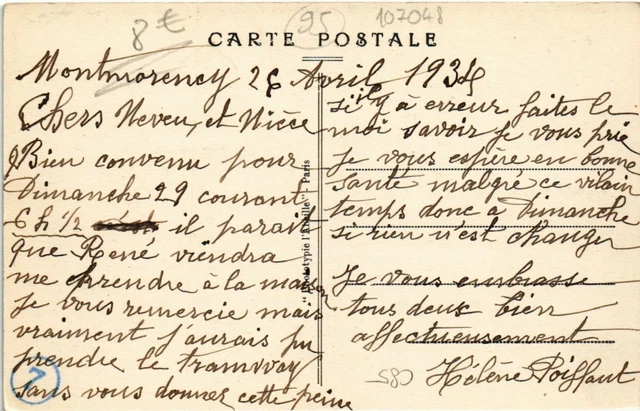 8€
95
107048
CARTE POSTALE
Montmorency 26 Avril 1934
Chers Neveu, et Nièce
Bien convenu pour
Dimanche 29 courant
6 h 1/2 il parait
que René viendra
me prendre à la maison
je vous remercie mais
vraiment j'aurais pu
prendre le tramway
sans vous donner cette peine
"Phototypie l'Abeille" Paris
si il y à erreur faites le
moi savoir je vous prie
je vous espère en bonne
santé malgré ce vilain
temps donc a Dimanche
si rien n'est changer
Je vous embrasse
tous deux bien
affectueusement
Hélène Poiffaut
580